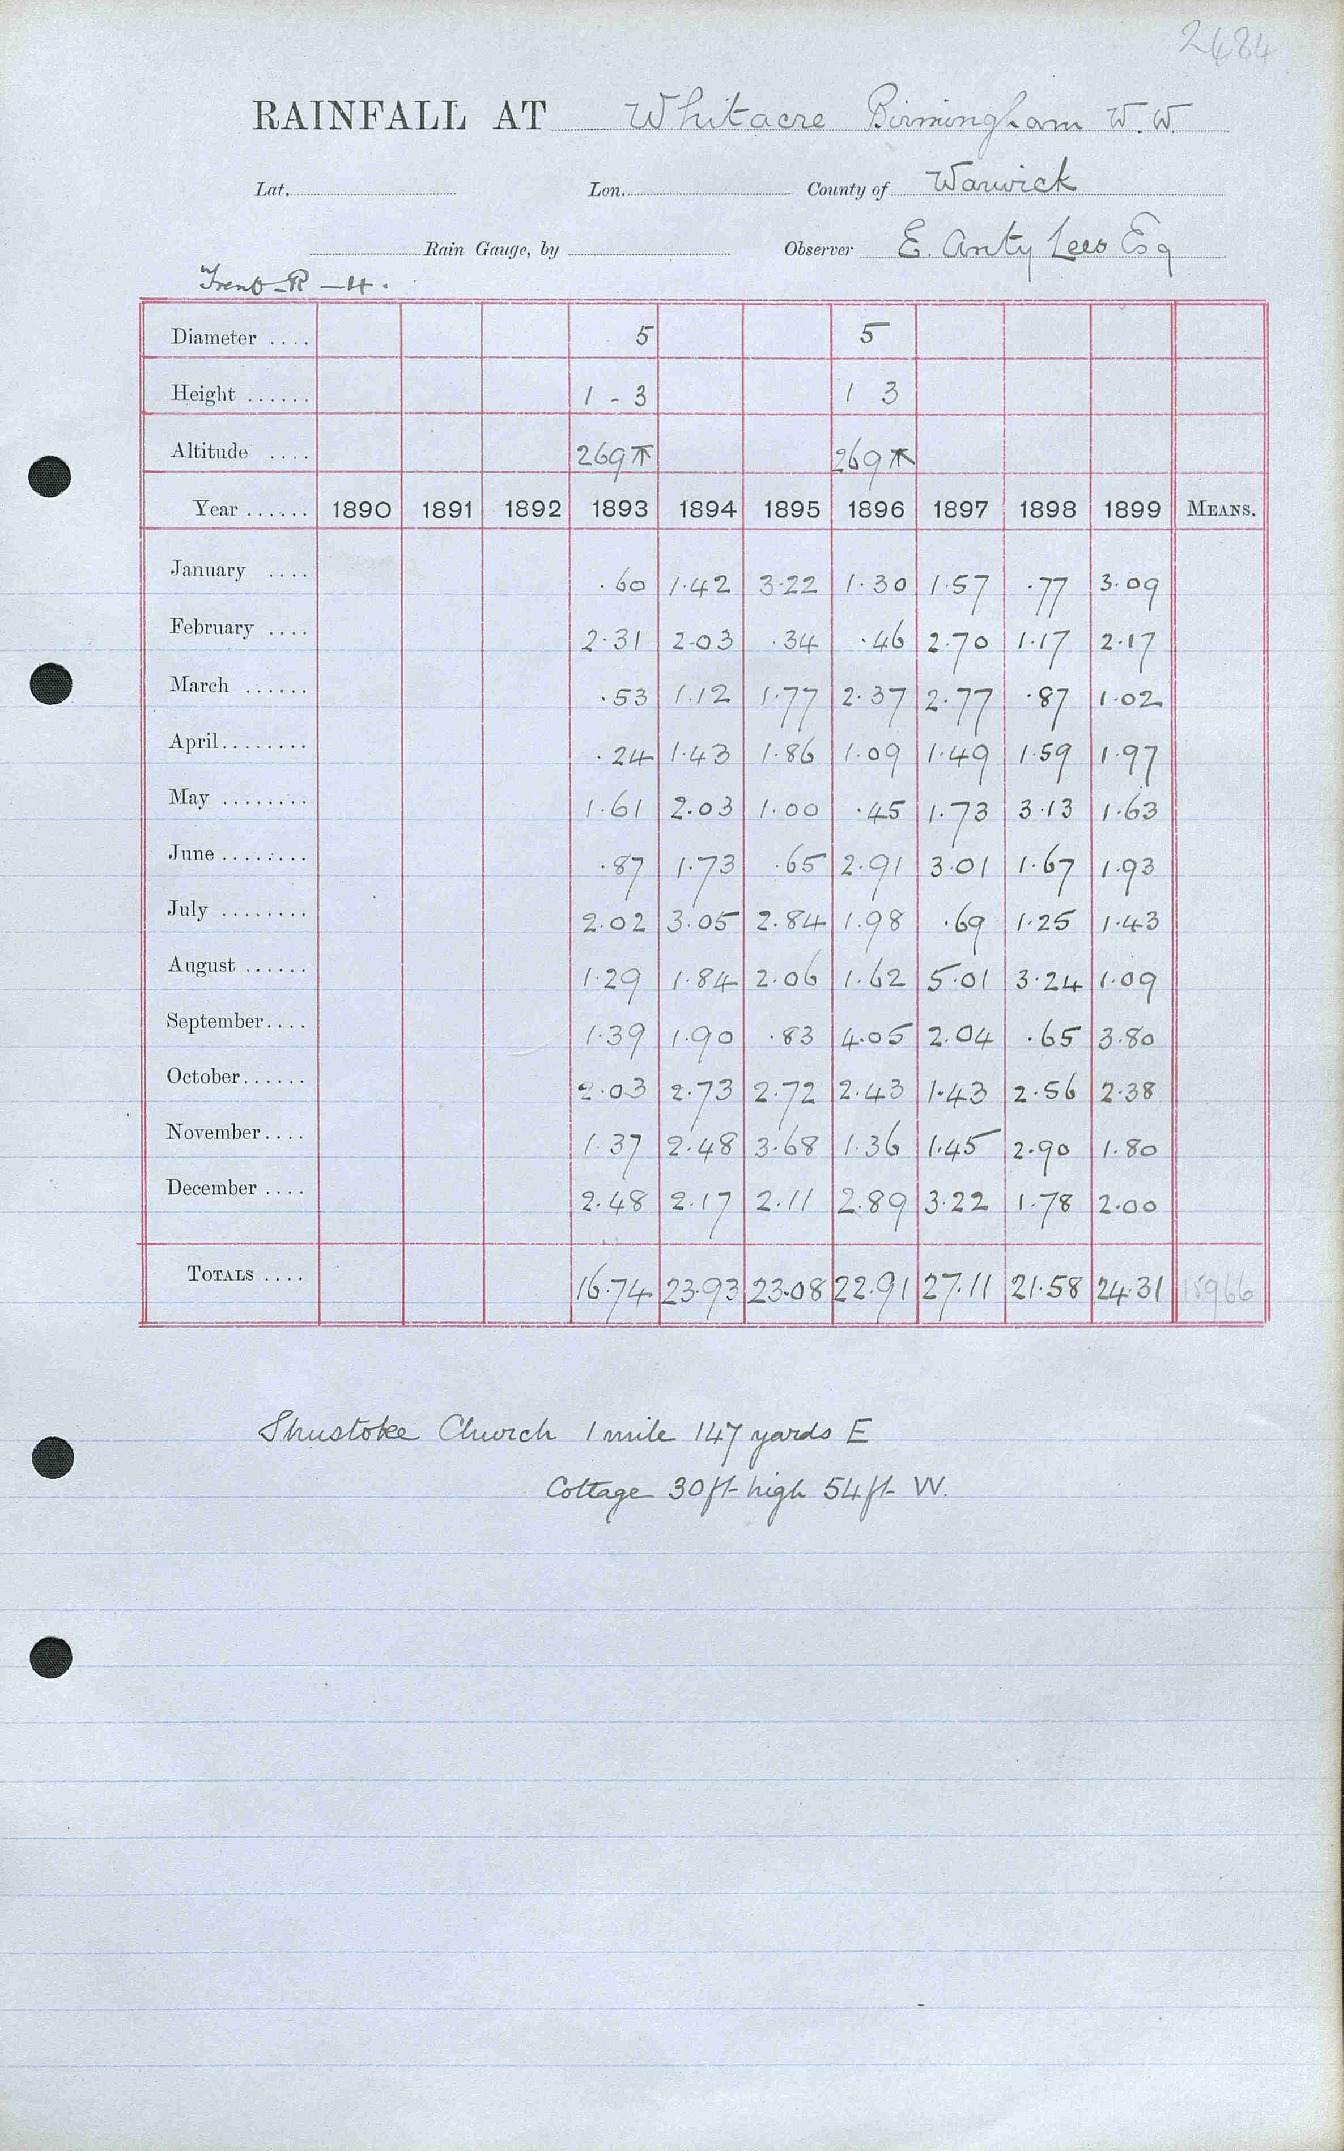 2484
RAINFALL AT Whitacre Birmingham W.W.
Lat. Lon. County of Warwick
Rain Gauge, by Observer E. Anty Lees Esq
Trent R - 4.
Diameter .... 5 5
Height ...... 1 - 3 1 3
Altitude .... 269 ⊼ 269 ⊼
Year ...... 1890 1891 1892 1893 1894 1895 1896 1897 1898 1899 MEANS.
January .... .60 1.42 3.22 1.30 1.57 .77 3.09
February .... 2.31 2.03 .34 .46 2.70 1.17 2.17
March ...... .53 1.12 1.77 2.37 2.77 .87 1.02
April........ .24 1.43 1.86 1.09 1.49 1.59 1.97
May ........ 1.61 2.03 1.00 .45 1.73 3.13 1.63
June ........ .87 1.73 .65 2.91 3.01 1.67 1.93
July ........ 2.02 3.05 2.84 1.98 .69 1.25 1.43
August ...... 1.29 1.84 2.06 1.62 5.01 3.24 1.09
September.... 1.39 1.90 .83 4.05 2.04 .65 3.80
October...... 2.03 2.73 2.72 2.43 1.43 2.56 2.38
November.... 1.37 2.48 3.68 1.36 1.45 2.90 1.80
December .... 2.48 2.17 2.11 2.89 3.22 1.78 2.00
TOTALS .... 16.74 23.93 23.08 22.91 27.11 21.58 24.31 15966
Shustoke Church 1 mile 147 yards E
Cottage 30 ft high 54 ft W.